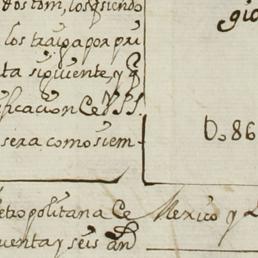 dos tom, los qsiendo
los traiga por pri
ta siguiente, y q
ificacion Ce VSS.
sera como siem-
gio
D. 86
etropolitana Ce Mexico y
uenta y seis añ